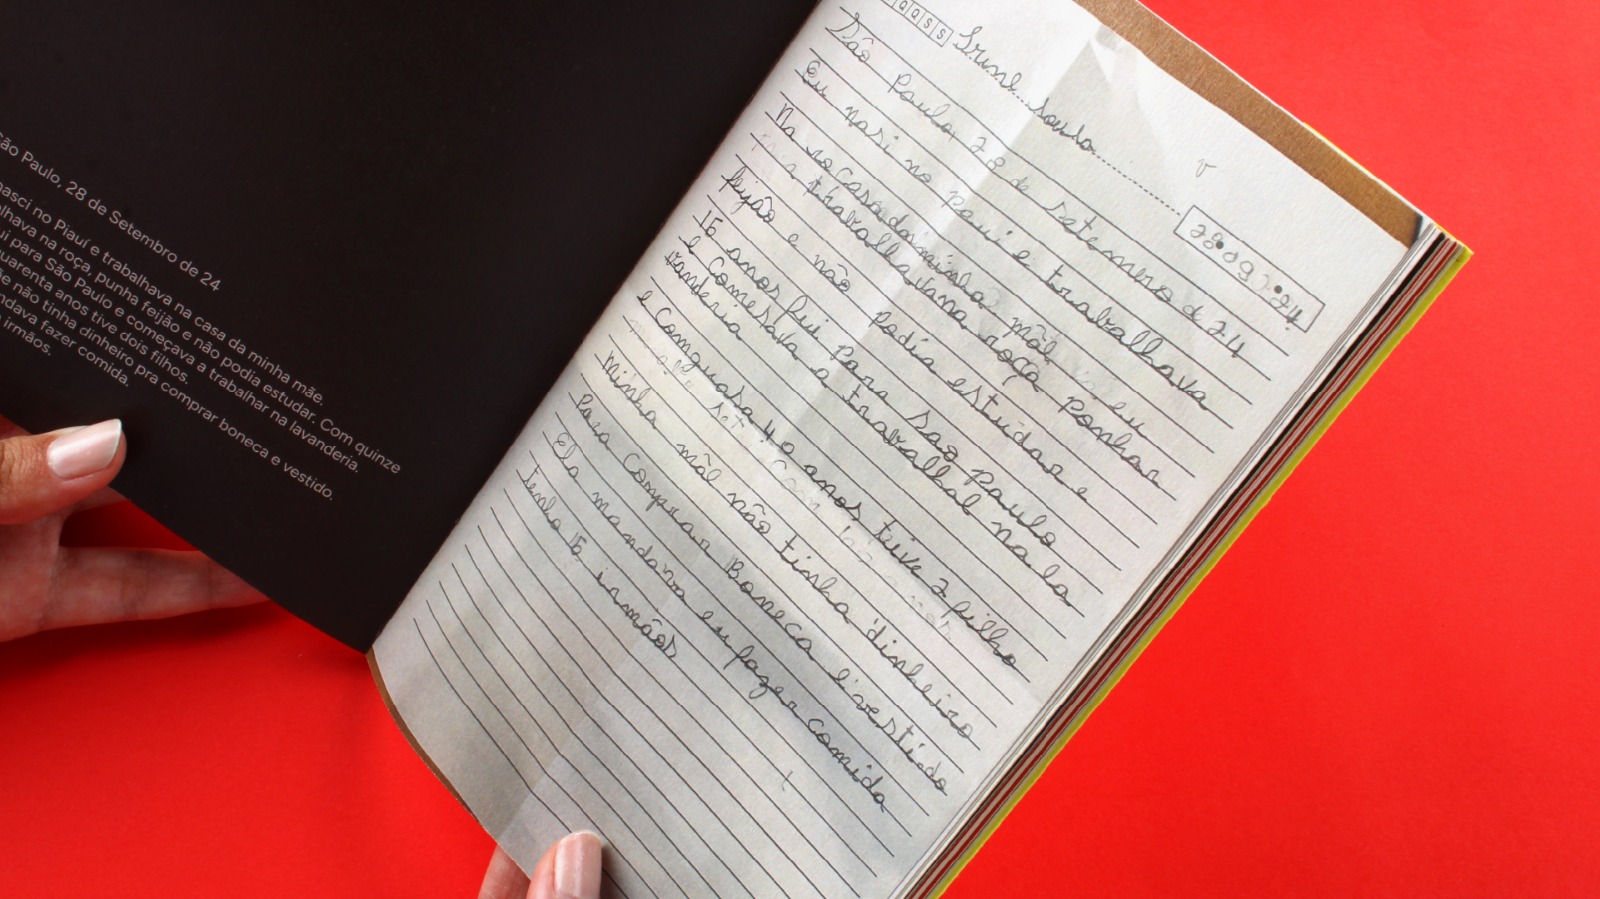 ão Paulo, 28 de Setembro de 24
nasci no Piauí e trabalhava na casa da minha mãe.
alhava na roça, punha feijão e não podia estudar. Com quinze
ui para São Paulo e começava a trabalhar na lavanderia.
uarenta anos tive dois filhos.
e não tinha dinheiro pra comprar boneca e vestido.
ndava fazer comida.
irmãos.
Q Q S S
28.09.24
São Paulo, 28 de setemero de 24
Eu nasi no paui e trabalhava
Na ro casa da minha mãe eu
trabalhava na roça ponhar
feijão e não podia estudar e
15 anos fui para sao paulo
e comesava a trabalhal na la
vanderia
e Comguasa 40 anos teive 2 filho
Minha mãe não tinha dinheiro
Para Comprar Boneca e vestido
Ela mandava eu fazer comida
tenho 15 irmãos